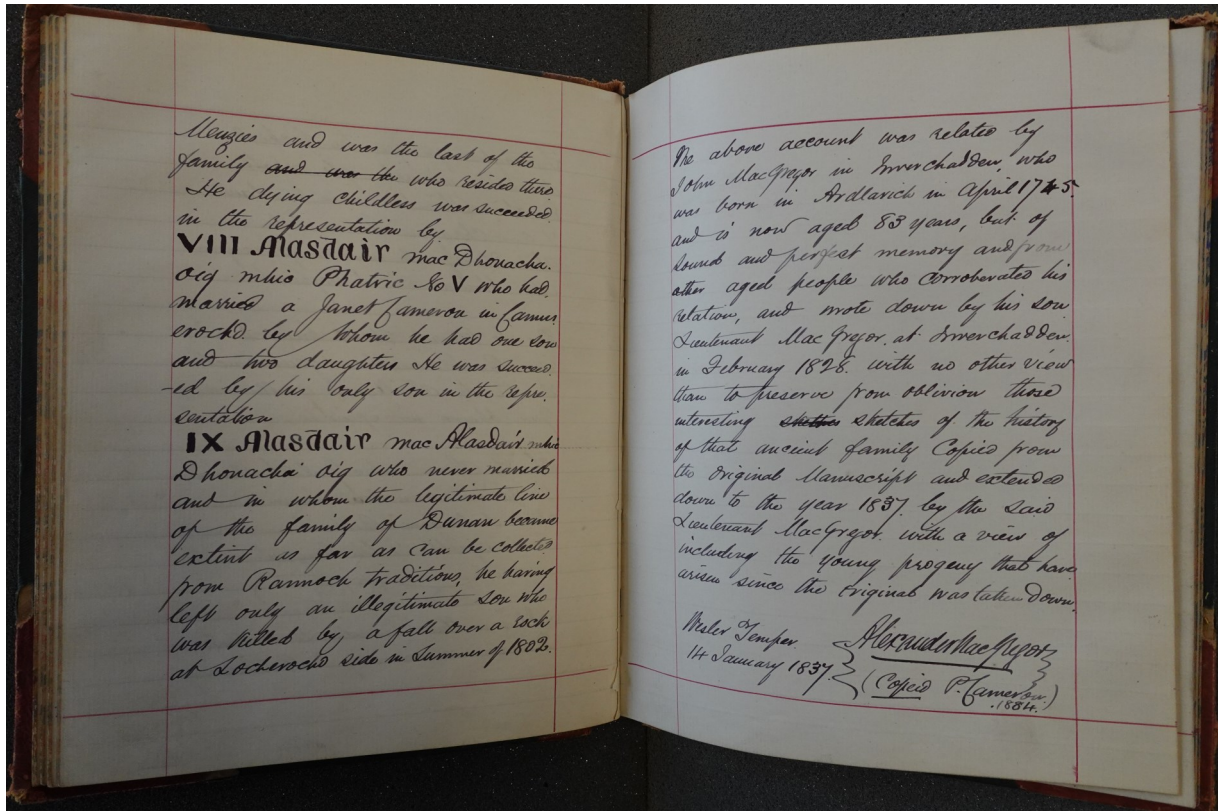 Menzies and was the last of the
family and was the who resided there
He dying childless was succeeded
in the representation by
VIII Alasdair mac Dhonacha.
oig mhic Phatric No V who had
married a Janet Cameron in Camus
erochd by whom he had one son
and two daughters He was succeed.
-ed by his only son in the repre.
sentation
IX Alasdair mac Alasdair mhic
Dhonacha oig who never married
and in whom the legitimate line
of the family of Dunan became
extint as far as can be collected
from Rannoch traditions, he having
left only an illegitimate son who
was killed by a fall over a rock
at Locherochd side in Summer of 1802.
The above account was related by
John MacGregor in Inverchadden, who
was born in Ardlarich in April 1745.
and is now aged 83 years, but of
sound and perfect memory and from
other aged people who corroberated his
relation, and wrote down by his son
Lieutenant MacGregor. at Inverchadden.
in February 1828. with no other view
than to preserve from oblivion those
interesting sketches of the history
of that ancient family Copied from
the original Manuscript and extended
down to the year 1837. by the said
Lieutenant MacGregor. with a view of
including the young progeny that have
arisen since the original was taken down.
Wester Temper.
14 January 1837.
Alexander MacGregor
(Copied P. Cameron.)
1884.